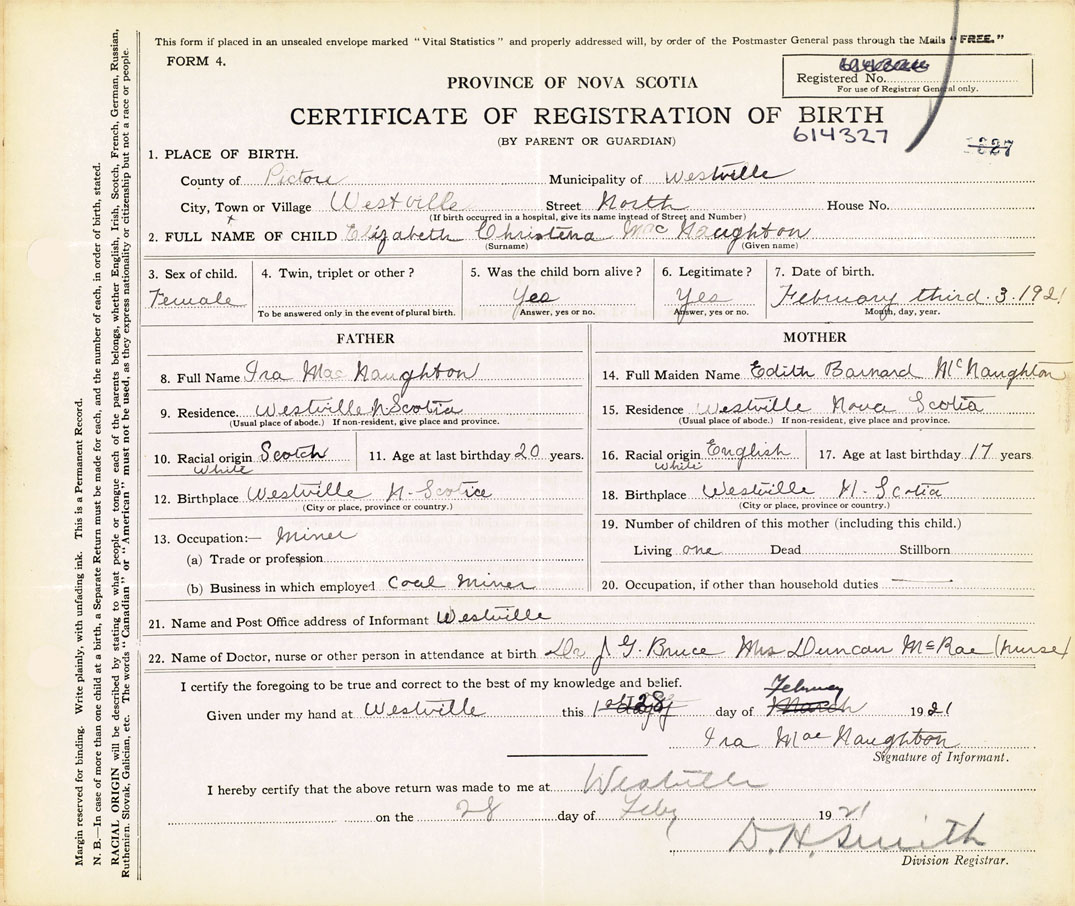 This form if placed in an unsealed envelope marked "Vital Statistics" and properly addressed will, by order of the Postmaster General pass through the Mails "FREE."
FORM 4.
Registered No.
For use of Registrar General only.
PROVINCE OF NOVA SCOTIA
CERTIFICATE OF REGISTRATION OF BIRTH
(BY PARENT OR GUARDIAN)
614327
1. PLACE OF BIRTH.
County of Pictou Municipality of Westville
City, Town or Village Westville Street North House No.
x
(If birth occurred in a hospital, give its name instead of Street and Number)
2. FULL NAME OF CHILD Elizabeth Christena MacNaughton
(Surname) (Given name)
3. Sex of child. 4. Twin, triplet or other? 5. Was the child born alive? 6. Legitimate? 7. Date of birth.
Female Yes Yes February third. 3. 1921
To be answered only in the event of plural birth. Answer, yes or no. Answer, yes or no. Month, day, year.
FATHER
8. Full Name Ira MacNaughton
9. Residence. Westville N. Scotia
(Usual place of abode.) If non-resident, give place and province.
10. Racial origin Scotch 11. Age at last birthday 20 years.
White
12. Birthplace Westville N. Scotia
(City or place, province or country.)
13. Occupation:— Miner
(a) Trade or profession
(b) Business in which employed Coal Miner
MOTHER
14. Full Maiden Name Edith Barnard McNaughton
15. Residence Westville Nova Scotia
(Usual place of abode.) If non-resident, give place and province.
16. Racial origin English 17. Age at last birthday. 17 years
White
18. Birthplace Westville N. Scotia
(City or place, province or country.)
19. Number of children of this mother (including this child.)
Living one Dead Stillborn
20. Occupation, if other than household duties
21. Name and Post Office address of Informant Westville
22. Name of Doctor, nurse or other person in attendance at birth Dr J. G. Bruce Mrs Duncan McRae (nurse)
I certify the foregoing to be true and correct to the best of my knowledge and belief.
February
Given under my hand at Westville this 28 day of March 1921
Ira MacNaughton
Signature of Informant.
I hereby certify that the above return was made to me at Westville
on the 28 day of Feby 1921
D. H. Smith
Division Registrar.
Margin reserved for binding. Write plainly, with unfading ink. This is a Permanent Record.
N. B.—In case of more than one child at a birth, a Separate Return must be made for each, and the number of each, in order of birth, stated.
RACIAL ORIGIN will be described by stating to what people or tongue each of the parents belongs, whether English, Irish, Scotch, French, German, Russian,
Ruthenian, Slovak, Galician, etc. The words "Canadian" or "American" must not be used, as they express nationality or citizenship but not a race or people.